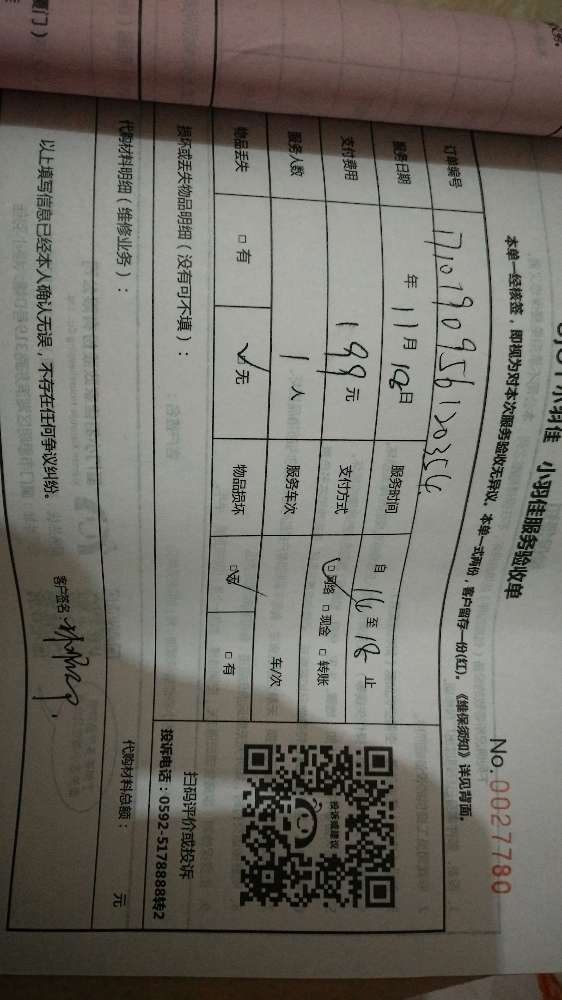 小羽佳 小羽佳服务验收单
No.0027780
本单一经核签，即视为对本次服务验收无异议。本单一式两份，客户留存一份(红)。《维保须知》详见背面。
订单编号 1710190956120354
服务日期 年 11月 18日 服务时间 自 16 至 18 止
支付费用 199元 支付方式 □网络 □现金 □转账
服务人数 1 人 服务车次 车/次
物品丢失 □有 □无 物品损坏 □无 □有
扫码评价或投诉
投诉电话：0592-5178888转2
投诉或建议
损坏或丢失物品明细（没有可不填）：
代购材料明细（维修业务）： 代购材料总额： 元
以上填写信息已经本人确认无误，不存在任何争议纠纷。
客户签名
厦门）